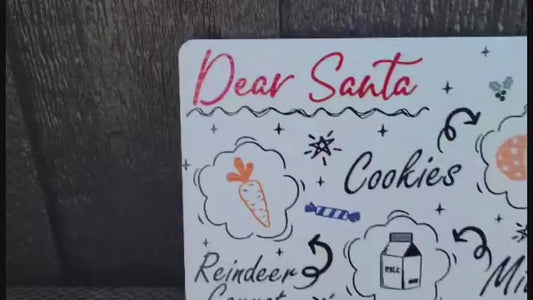 Dear Santa
Cookies
MILK
Reindeer
Carrot